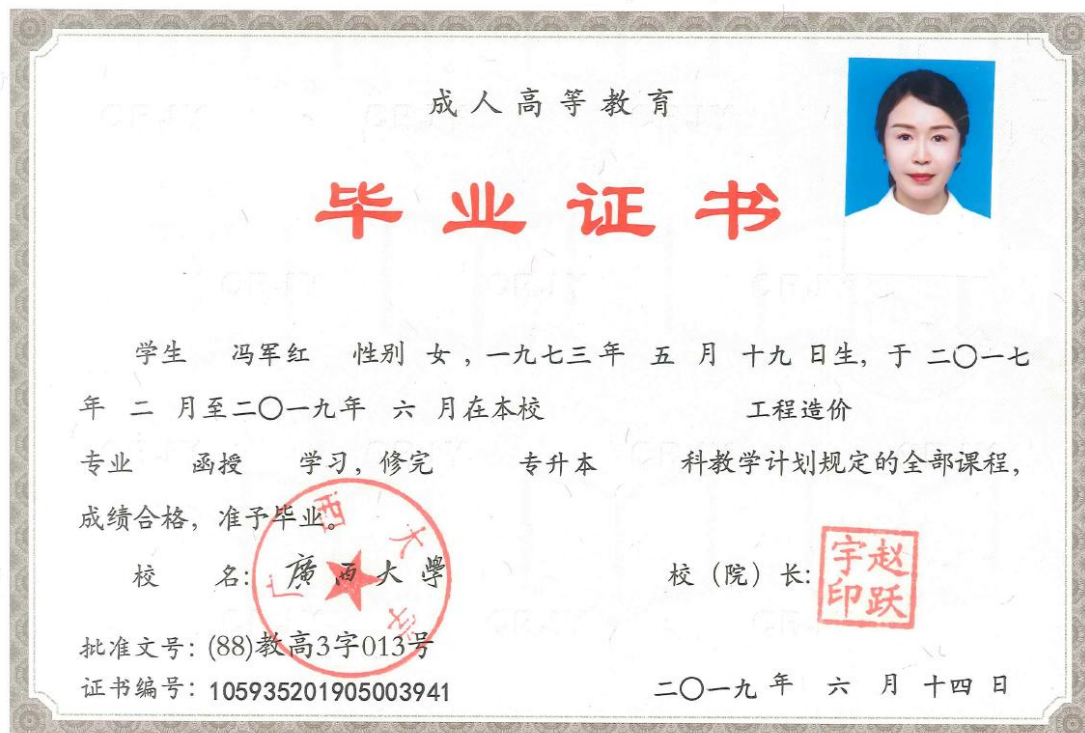 成人高等教育
毕业证书
学生 冯军红 性别 女，一九七三年 五 月 十九 日生，于 二〇一七
年 二 月至二〇一九年 六 月在本校 工程造价
专业 函授 学习，修完 专升本 科教学计划规定的全部课程，
成绩合格，准予毕业。
广西大学
校 名：廣西大學 校（院）长：
赵跃宇印
批准文号：(88)教高3字013号
证书编号：105935201905003941 二〇一九 年 六 月 十四 日